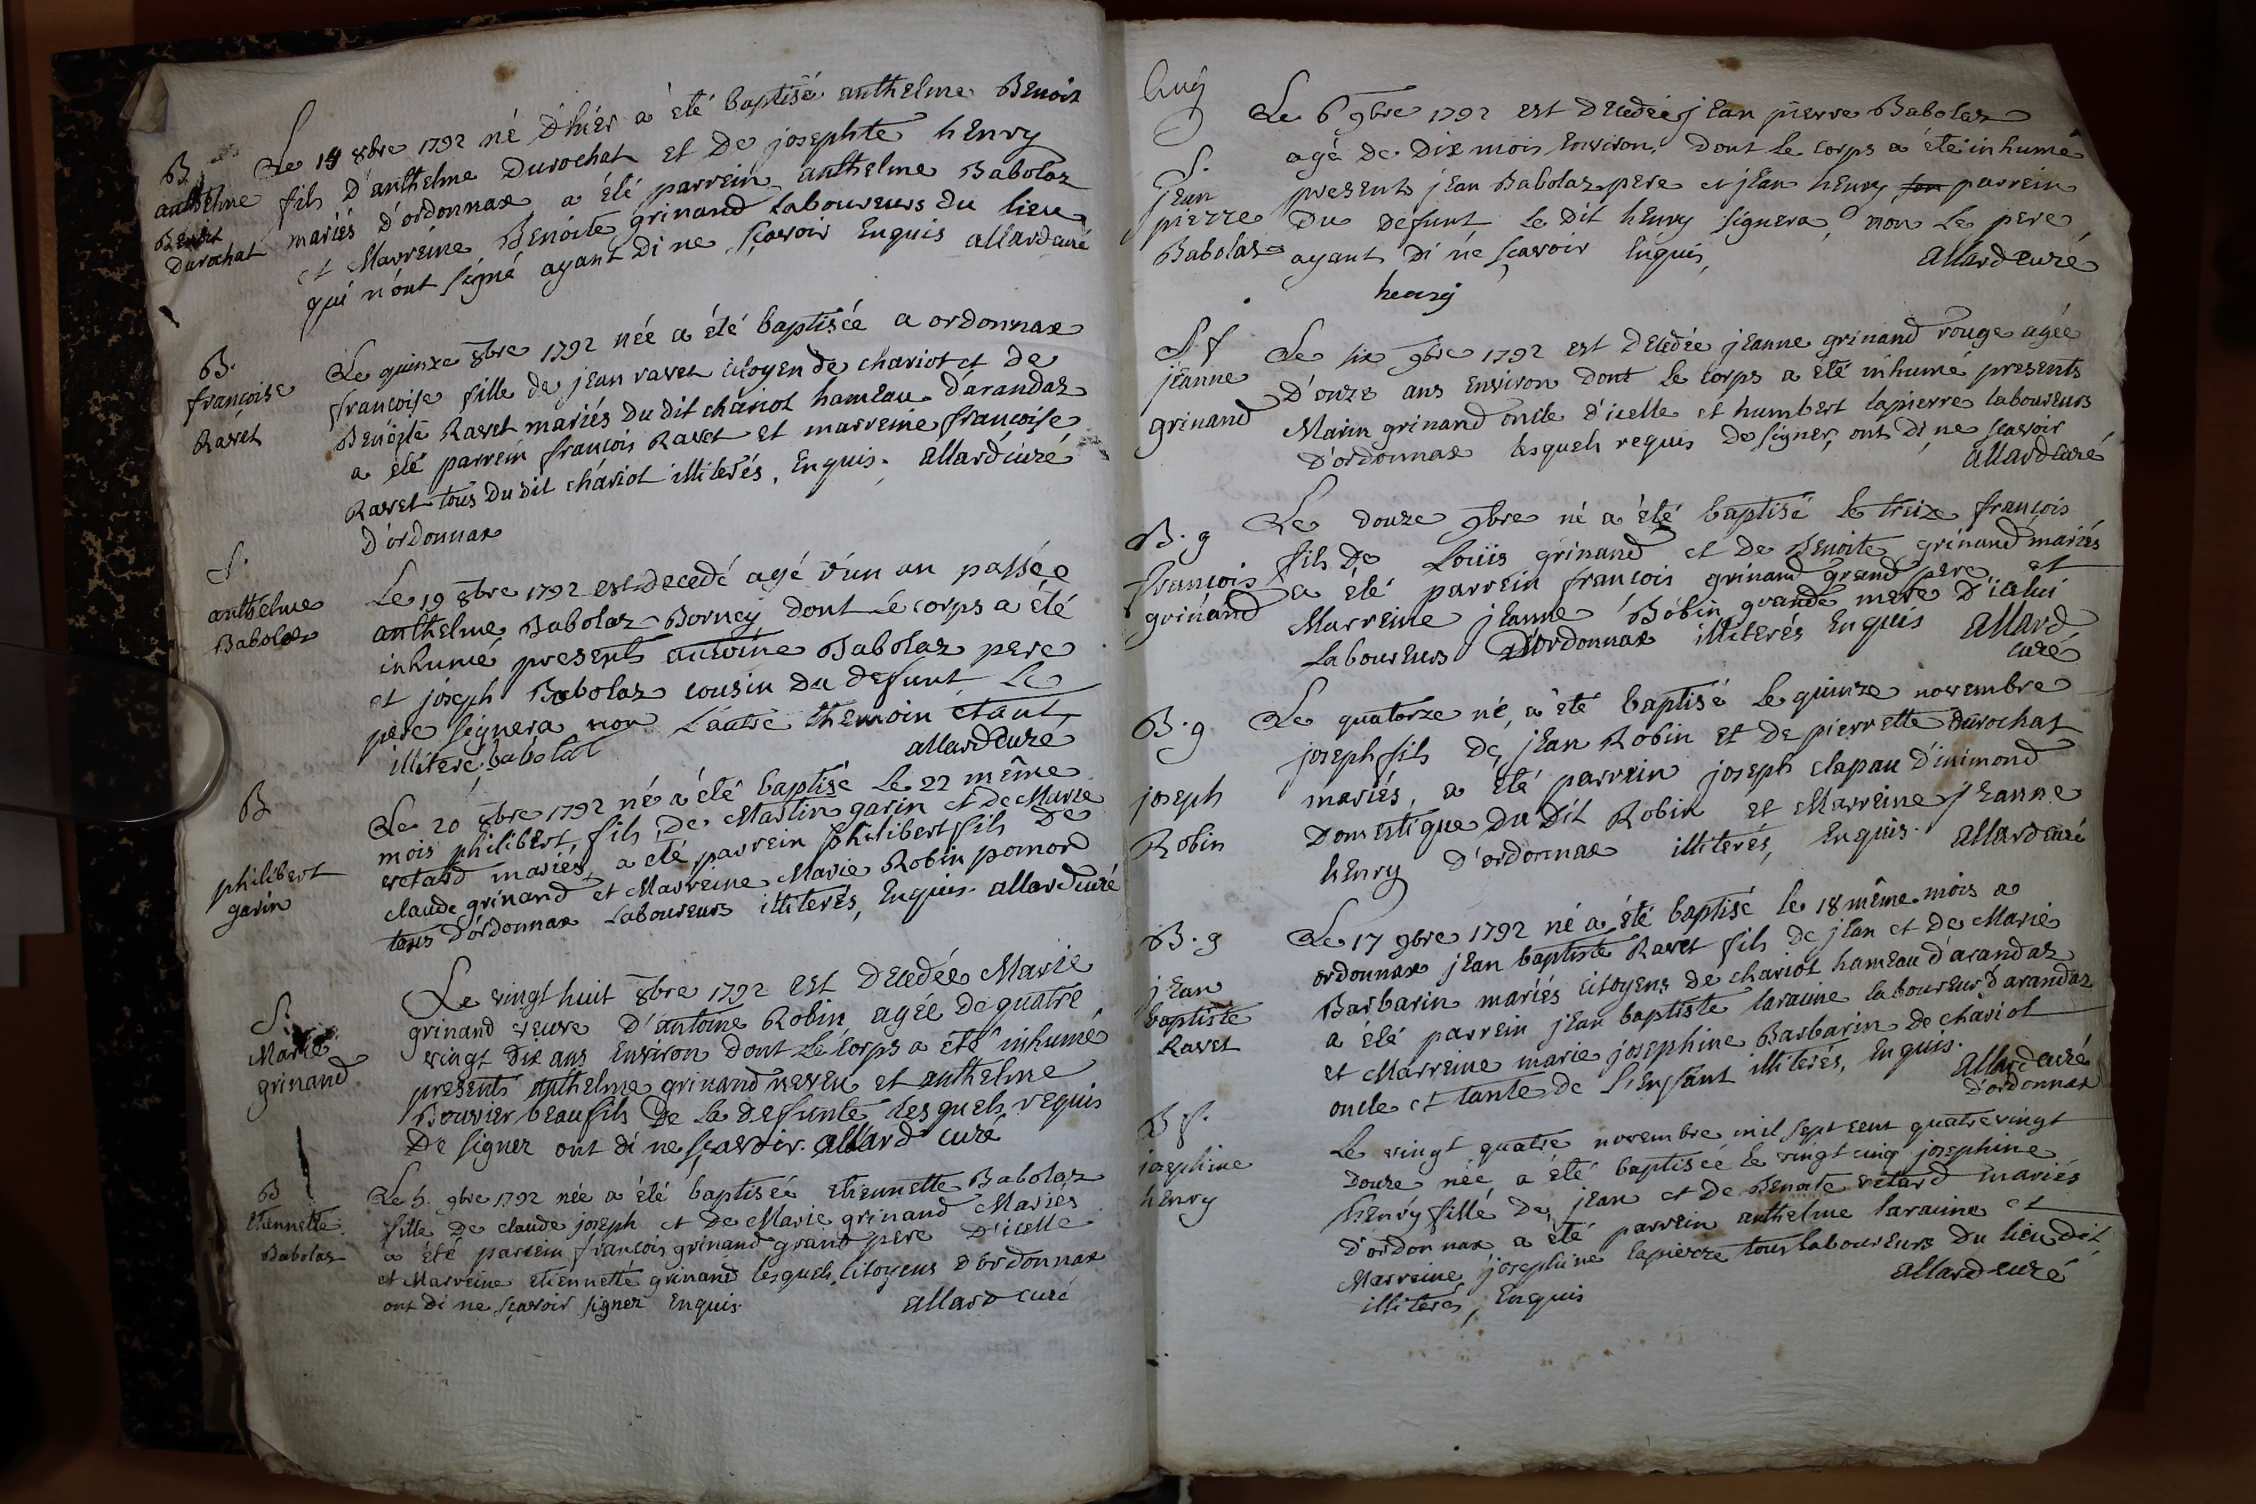 B.
anthelme
Benoit
durochat
Le 14 8bre 1792 né d'hier a été baptisé anthelme Benoit
fils d'anthelme durochat et de josephte henry
mariés d'ordonnax a été parrein anthelme Babolaz
et Marréine Benoite grinand laboureurs du lieu
qui n'ont signé ayant di ne sçavoir Enquis allard curé
B.
françoise
Ravet
Le quinze 8bre 1792 née a été baptisée a ordonnax
françoise fille de jean ravet citoyen de chariot et de
Benoite Ravet mariés du dit chariot hameau d'arandaz
a été parrein françois Ravet et marreine françoise
Ravet tous du dit chariot illiterés, Enquis. allard curé
d'ordonnax
S.
anthelme
Babolaz
Le 19 8bre 1792 est decedé agé d'un an passée
anthelme Babolaz Borney dont le corps a été
inhumé presents antoine Babolaz pere
et joseph Babolaz cousin du defunt le
pere signera non l'autre themoin étant
illiteré. babolat allard curé
B
philibert
garin
Le 20 8bre 1792 né a été baptisé le 22 même
mois philibert, fils de Martin garin et de Marie
retard mariés, a été parrein philibert fils de
claude grinand et Marreine Marie Robin pomod
tous d'ordonnax laboureurs illiterés, Enquis. allard curé
S.
Marie
grinand
Le vingt huit 8bre 1792 est decedée Marie
grinand veuve d'antoine Robin agée de quatre
vingt dix ans environ dont le corps a été inhumé
presents anthelme grinand neveu et anthelme
Bouvier beaufils de la defunte lesquels requis
de signer ont di ne sçavoir. allard curé
B
etiennette
Babolaz
Le 5. 9bre 1792 née a été baptisée etiennette Babolaz
fille de claude joseph et de Marie grinand Mariés
a été parrein françois grinand grand pere d'icelle
et Marreine etiennette grinand lesquels, citoyens d'ordonnax
ont di ne sçavoir signer enquis. allard curé
S.
jean
pierre
Babolaz
Le 6 9bre 1792 est decedé jean pierre Babolaz
agé de dix mois environ, dont le corps a été inhumé
presents jean Babolaz pere et jean henry son parrein
du defunt le dit henry signera non le pere
ayant di ne sçavoir Enquis, allard curé
henry
S. f
jeanne
grinand
Le six 9bre 1792 est decedée jeanne grinand rouge agée
d'onze ans environ dont le corps a été inhumé presents
Marin grinand oncle d'icelle et humbert lapierre laboureurs
d'ordonnax lesquels requis de signer, ont di ne sçavoir
allard curé
B. g
françois
grinand
Le douze 9bre né a été baptisé le treize françois
fils de Louis grinand et de Benoite grinand mariés
a été parrein françois grinand grand pere et
Marreine jeanne Bobin grande mere d'icelui
laboureurs d'ordonnax illiterés Enquis allard
curé
B. g
joseph
Robin
Le quatorze né, a été baptisé le quinze novembre
joseph fils de jean Robin et de pierrette durochat
mariés, a été parrein joseph clapau d'inimond
domestique du dit Robin et Marreine jeanne
henry d'ordonnax illiterés, enquis. allard curé
B. g
jean
baptiste
Ravet
Le 17 9bre 1792 né a été baptisé le 18 même mois a
ordonnax jean baptiste Ravet fils de jean et de Marie
Barbarin mariés citoyens de chariot hameau d'arandaz
a été parrein jean baptiste laracine laboureur d'arandaz
et Marreine marie josephine Barbarin de chariot
oncle et tante de l'enfant illiterés, Enquis. allard curé
d'ordonnax
B f.
josephine
henry
Le vingt quatre novembre mil sept cent quatre vingt
douze née a été baptisée le vingt cinq josephine
henry fille de jean et de Benoite retard mariés
d'ordonnax a été parrein anthelme laracine et
Marreine josephine lapierre tous laboureurs du lieu dit
illiterés, Enquis allard curé